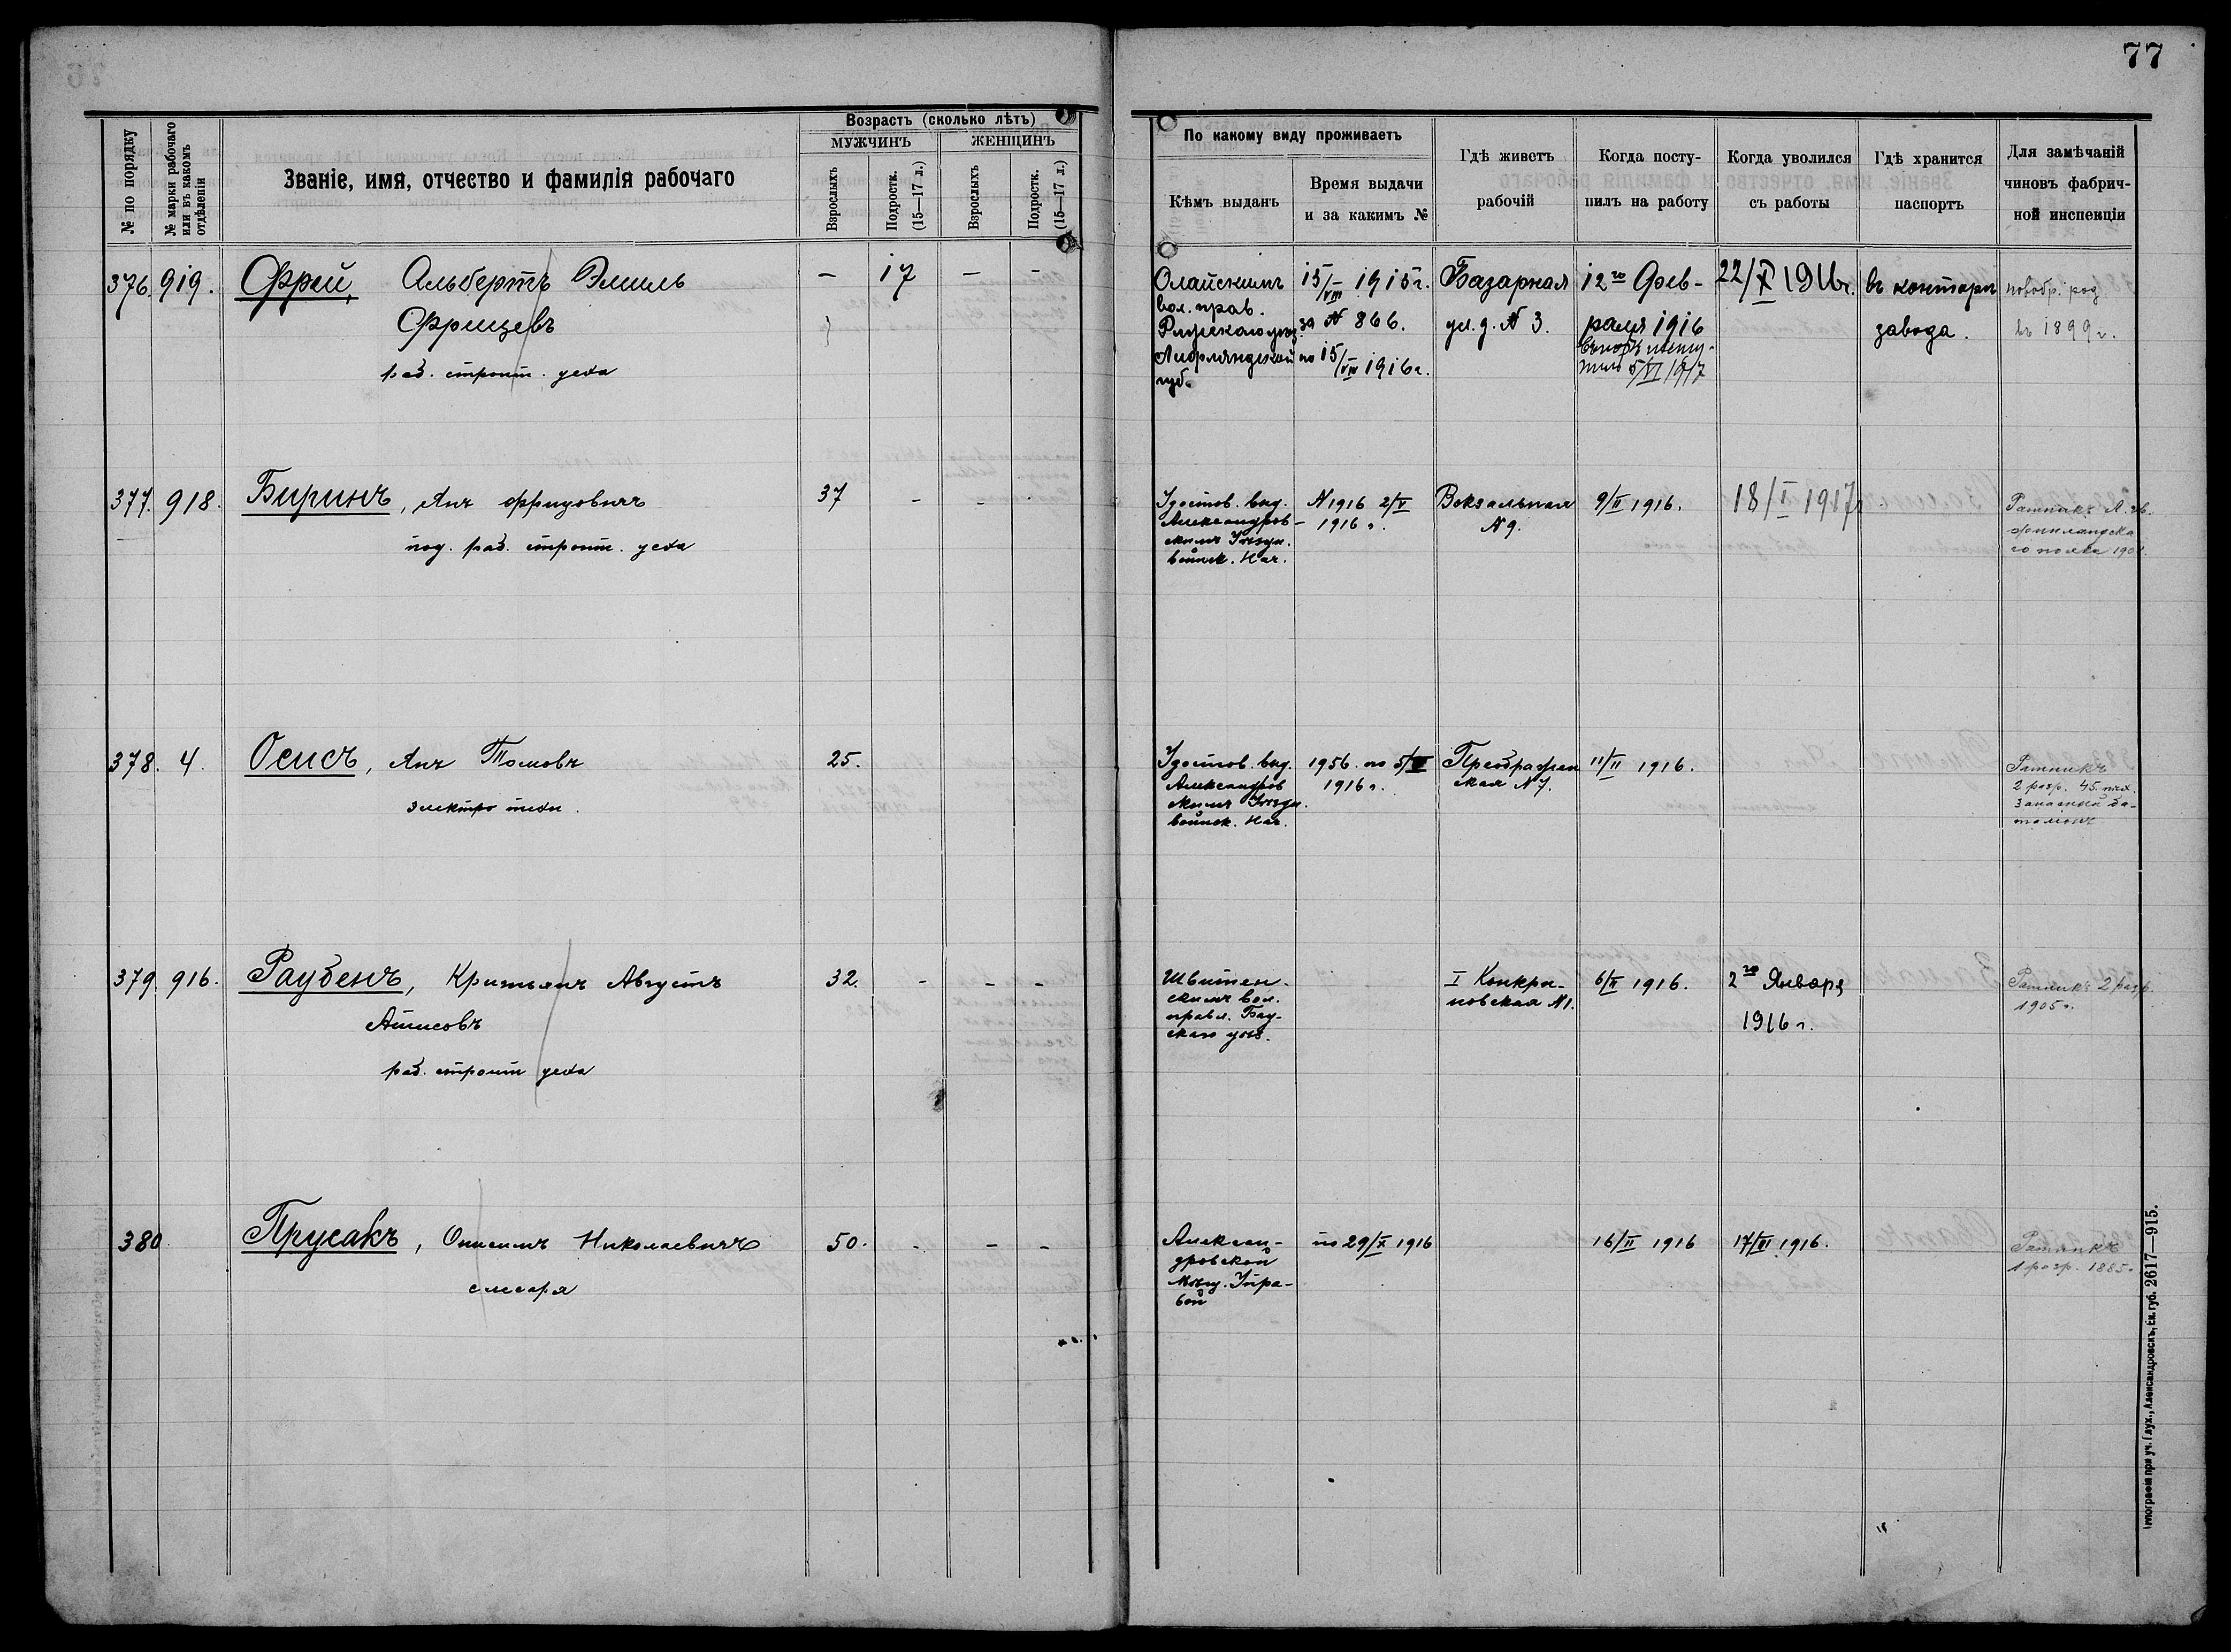 77
№ по порядку
№ марки рабочаго или въ какомъ отдѣленіи
Званіе, имя, отчество и фамилія рабочаго
Возрастъ (сколько лѣтъ)
МУЖЧИНЪ
ЖЕНЩИНЪ
Взрослыхъ
Подростк. (15—17 л.)
Взрослыхъ
Подростк. (15—17 л.)
По какому виду проживаетъ
Кѣмъ выданъ
Время выдачи
и за какимъ №
Гдѣ живетъ
рабочій
Когда посту-
пилъ на работу
Когда уволился
съ работы
Гдѣ хранится
паспортъ
Для замѣчаній
чиновъ фабрич-
ной инспекціи
376. 919. Фрей, Альбертъ Эмиль — 17 — -
Фрицевъ
раб. строит. цеха
Олайскимъ
вол. прав.
Рижскаго уѣз.
Лифляндской
губ.
15/VIII 1915 г.
за № 866.
по 15/VIII 1916 г.
Базарная
ул. д. № 3.
12го Фев-
раля 1916
5/VI 1917
22/X 1916 г.
въ конторѣ
завода.
новобр. род
въ 1899 г.
377. 918. Биринъ, Янъ Фрицовичъ 37 - - -
под. раб. строит. цеха
Удостов. выд.
Александров-
скимъ Уѣздн.
воинск. Нач.
№ 1916 2/V
1916 г.
Вокзальная
№ 9.
9/II 1916.
18/I 1917
Ратникъ Л. гв.
финляндска
го полка
378. 4. Осисъ, Янъ Томовъ 25.
электро техн.
Удостов. выд.
Александров
скимъ Уѣздн.
воинск. Нач.
1956. по
1916 г.
Преображен
ская № 7.
11/II 1916.
Ратникъ
2 разр. 45. пѣх.
Запасный ба-
таліонъ
379. 916. Раубенъ, Кристьянъ Августъ 32. - - -
Ансовъ
раб. строит цеха
Швитен-
скимъ вол.
правл. Бау-
скаго уѣз.
I
новская № 1.
6/II 1916.
2го Января
1916 г.
Ратникъ 2 разр.
1905 г.
380 Прусакъ, Онисимъ Николаевичъ 50. - - -
слесаря
Алексан-
дровской
Мѣщ. Упра-
вой
по 29/X 1916
16/II 1916
17/III 1916.
Ратникъ
1 разр. 1885 г.
Типографія при уч. Глух., Александровскъ, Ек. губ. 2617—915.